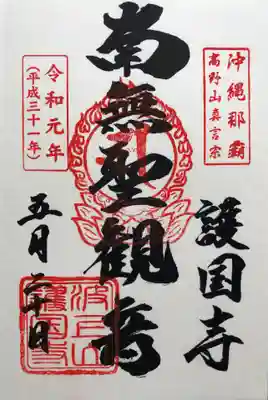 沖縄那覇
高野山真言宗
護国寺
南無聖観音
令和元年
(平成三十一年)
五月二十日
波上山
護国寺